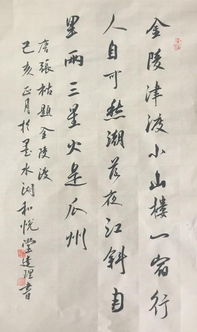 金陵津渡小山樓一宿行
人自可愁潮落夜江斜月
里兩三星火是瓜州
唐張祜題金陵渡
己亥正月於墨水湖和悦堂 理書